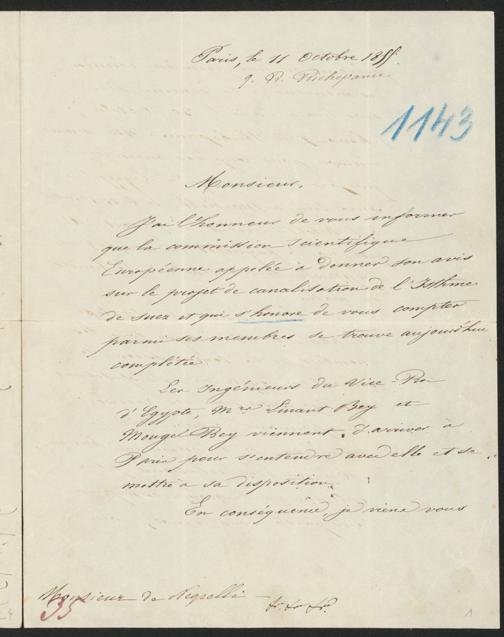 Paris, le 11 Octobre 1855.
9. R. Richepance
1143
Monsieur,
J'ai l'honneur de vous informer
que la commission scientifique
Européenne appelée à donner son avis
sur le projet de canalisation de l'Isthme
de Suez et qui s'honore de vous compter
parmi ses membres se trouve aujourd'hui
complétée.
Les Ingénieurs du Vice-Roi
d'Egypte, Mrs Linant Bey et
Mougel Bey viennent d'arriver à
Paris pour s'entendre avec elle et se
mettre à sa disposition.
En conséquence je viens vous
Monsieur de Negrelli
35